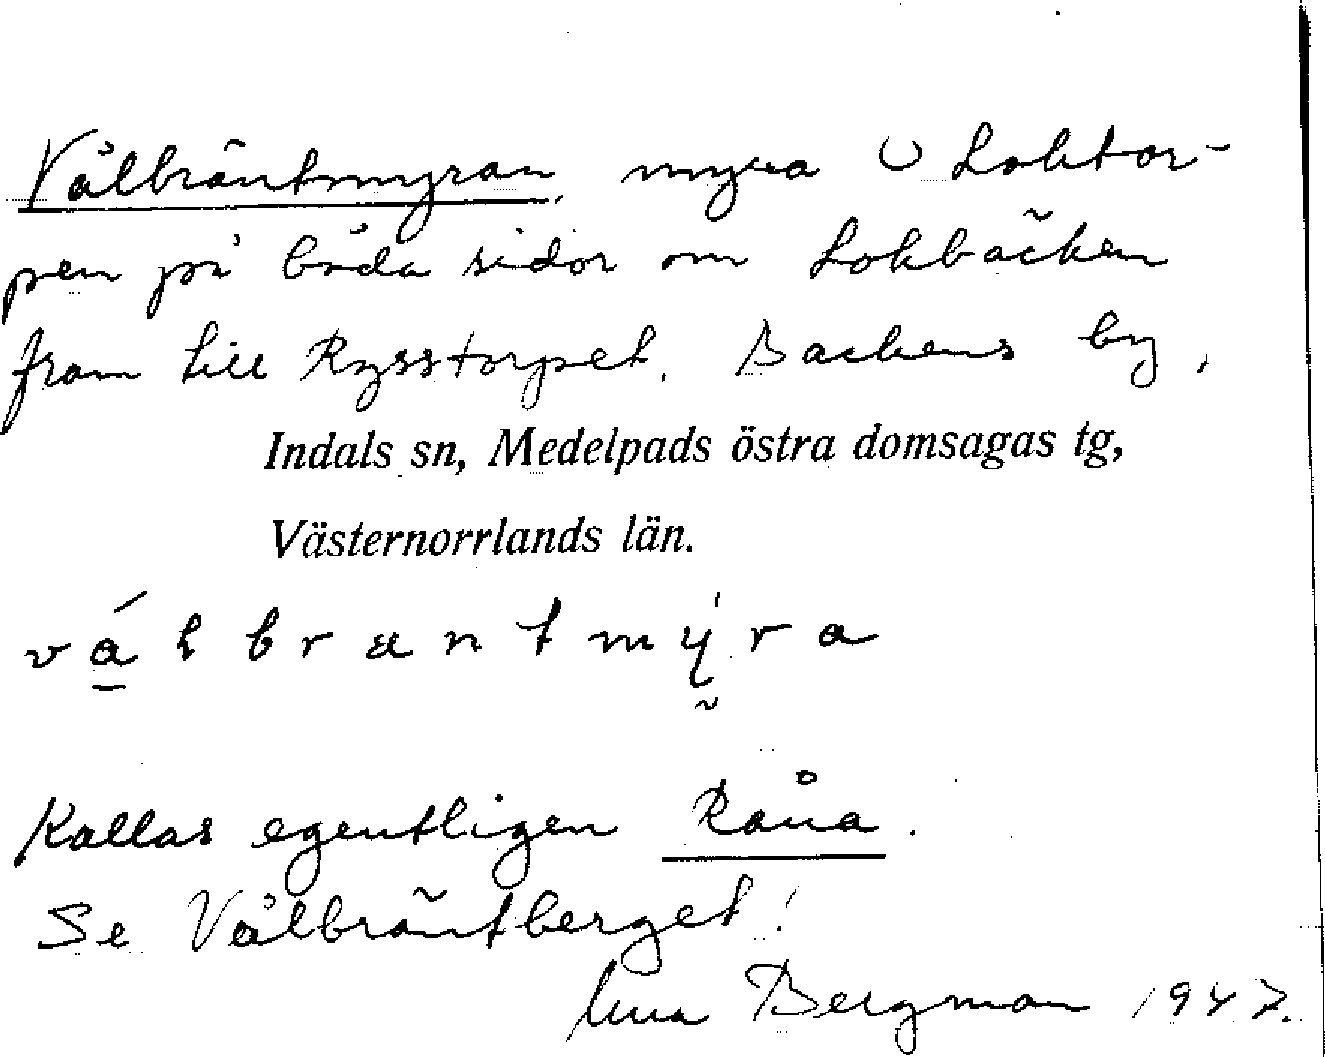 Vålbräntmyran, myra O Loktor-
pen på båda sidor om Lokbäcken
fram till Rysstorpet. Backens by,
Indals sn, Medelpads östra domsagas tg,
Västernorrlands län.
vá̱lbræntmý̰ra
Kallas egentligen Råna.
Se Vålbräntberget!
Bergman 1947.